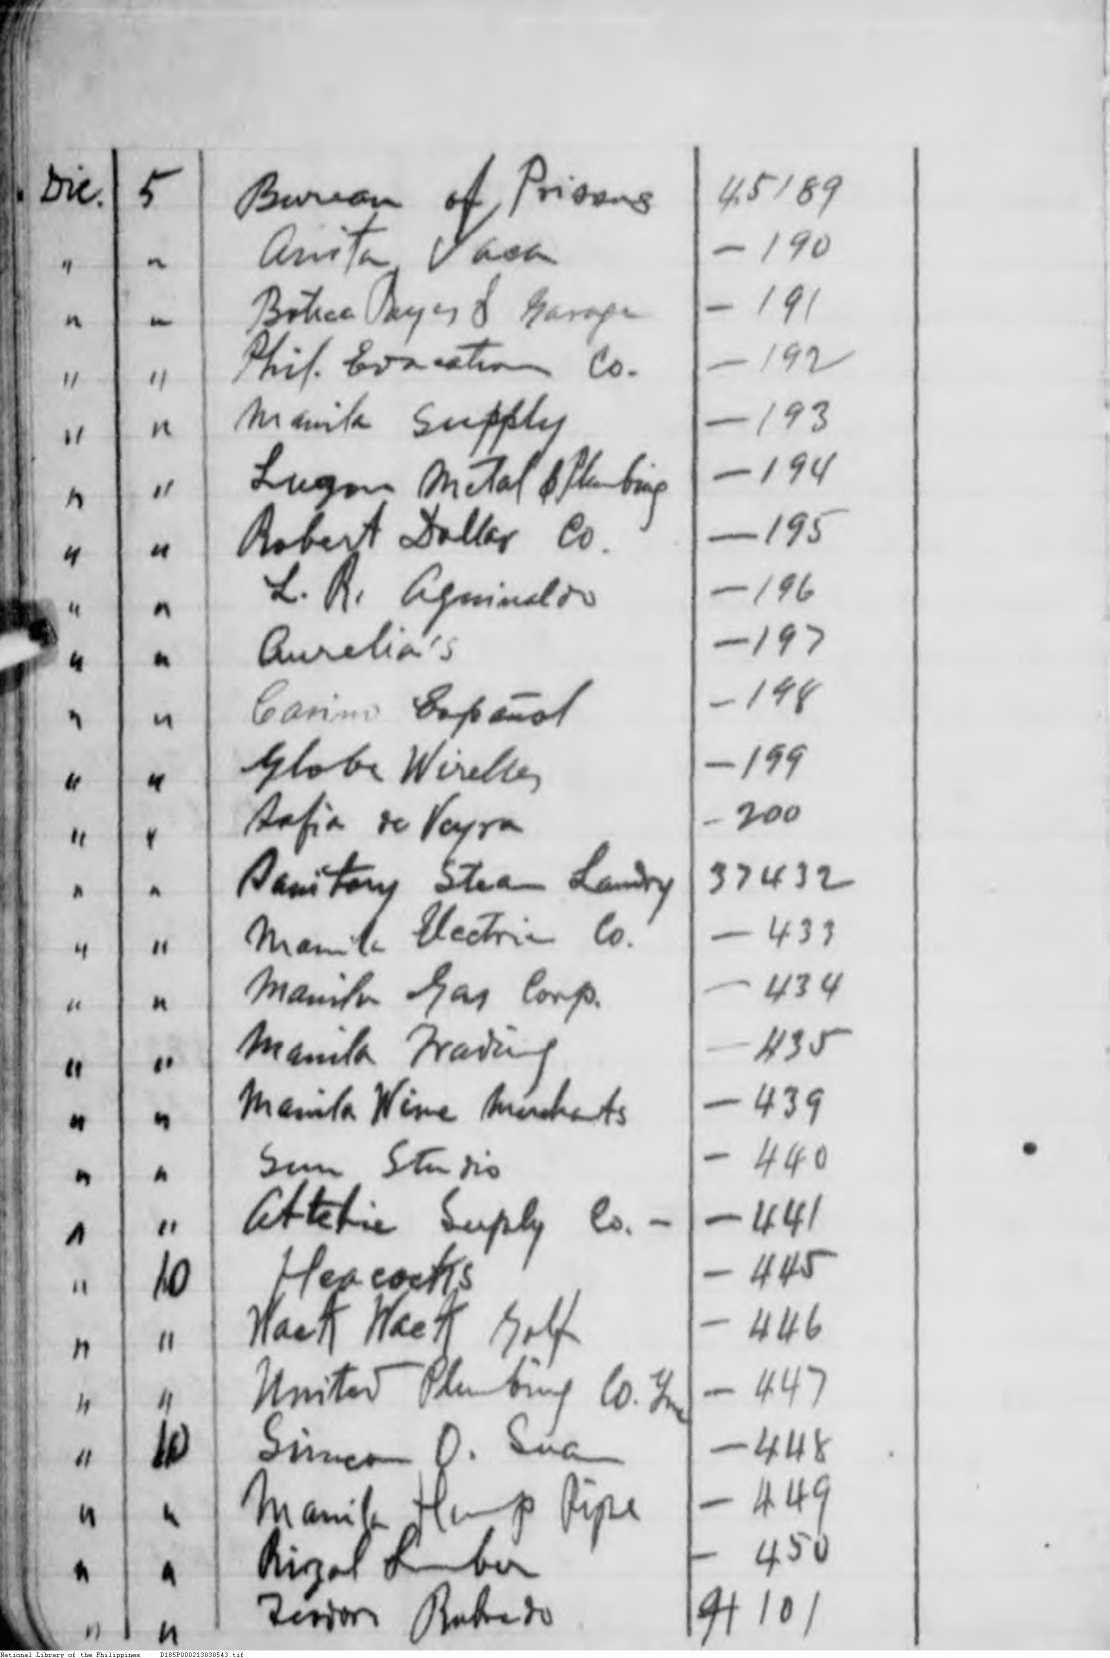 Dic. 5 Bureau of Prisons 45189
" " Anita Vasa - 190
" " Botica Reyes & Garage - 191
" " Phil. Education Co. - 192
" " Manila Supply - 193
" " Luzon Metal & Plumbing - 194
" " Robert Dollar Co. - 195
" " L. R. Aguinaldo - 196
" " Aurelia's - 197
" " Casino Español - 198
" " Globe Wireless - 199
" " Sofia de Veyra - 200
" " Sanitary Steam Laundry 37432
" " Manila Electric Co. - 433
" " Manila Gas Corp. - 434
" " Manila Trading - 435
" " Manila Wine Merchants - 439
" " Sun Studio - 440
" " Supply Co. - - 441
" 10 Heacocks - 445
" " Wack Wack Golf - 446
" " United Plumbing Co. Inc - 447
" 10 Simeon O. - 448
" " Manila Hemp Pipe - 449
" " Rizal Lumber - 450
" " Teodoro 101
National Library of the Philippines D185P000213030543.tif